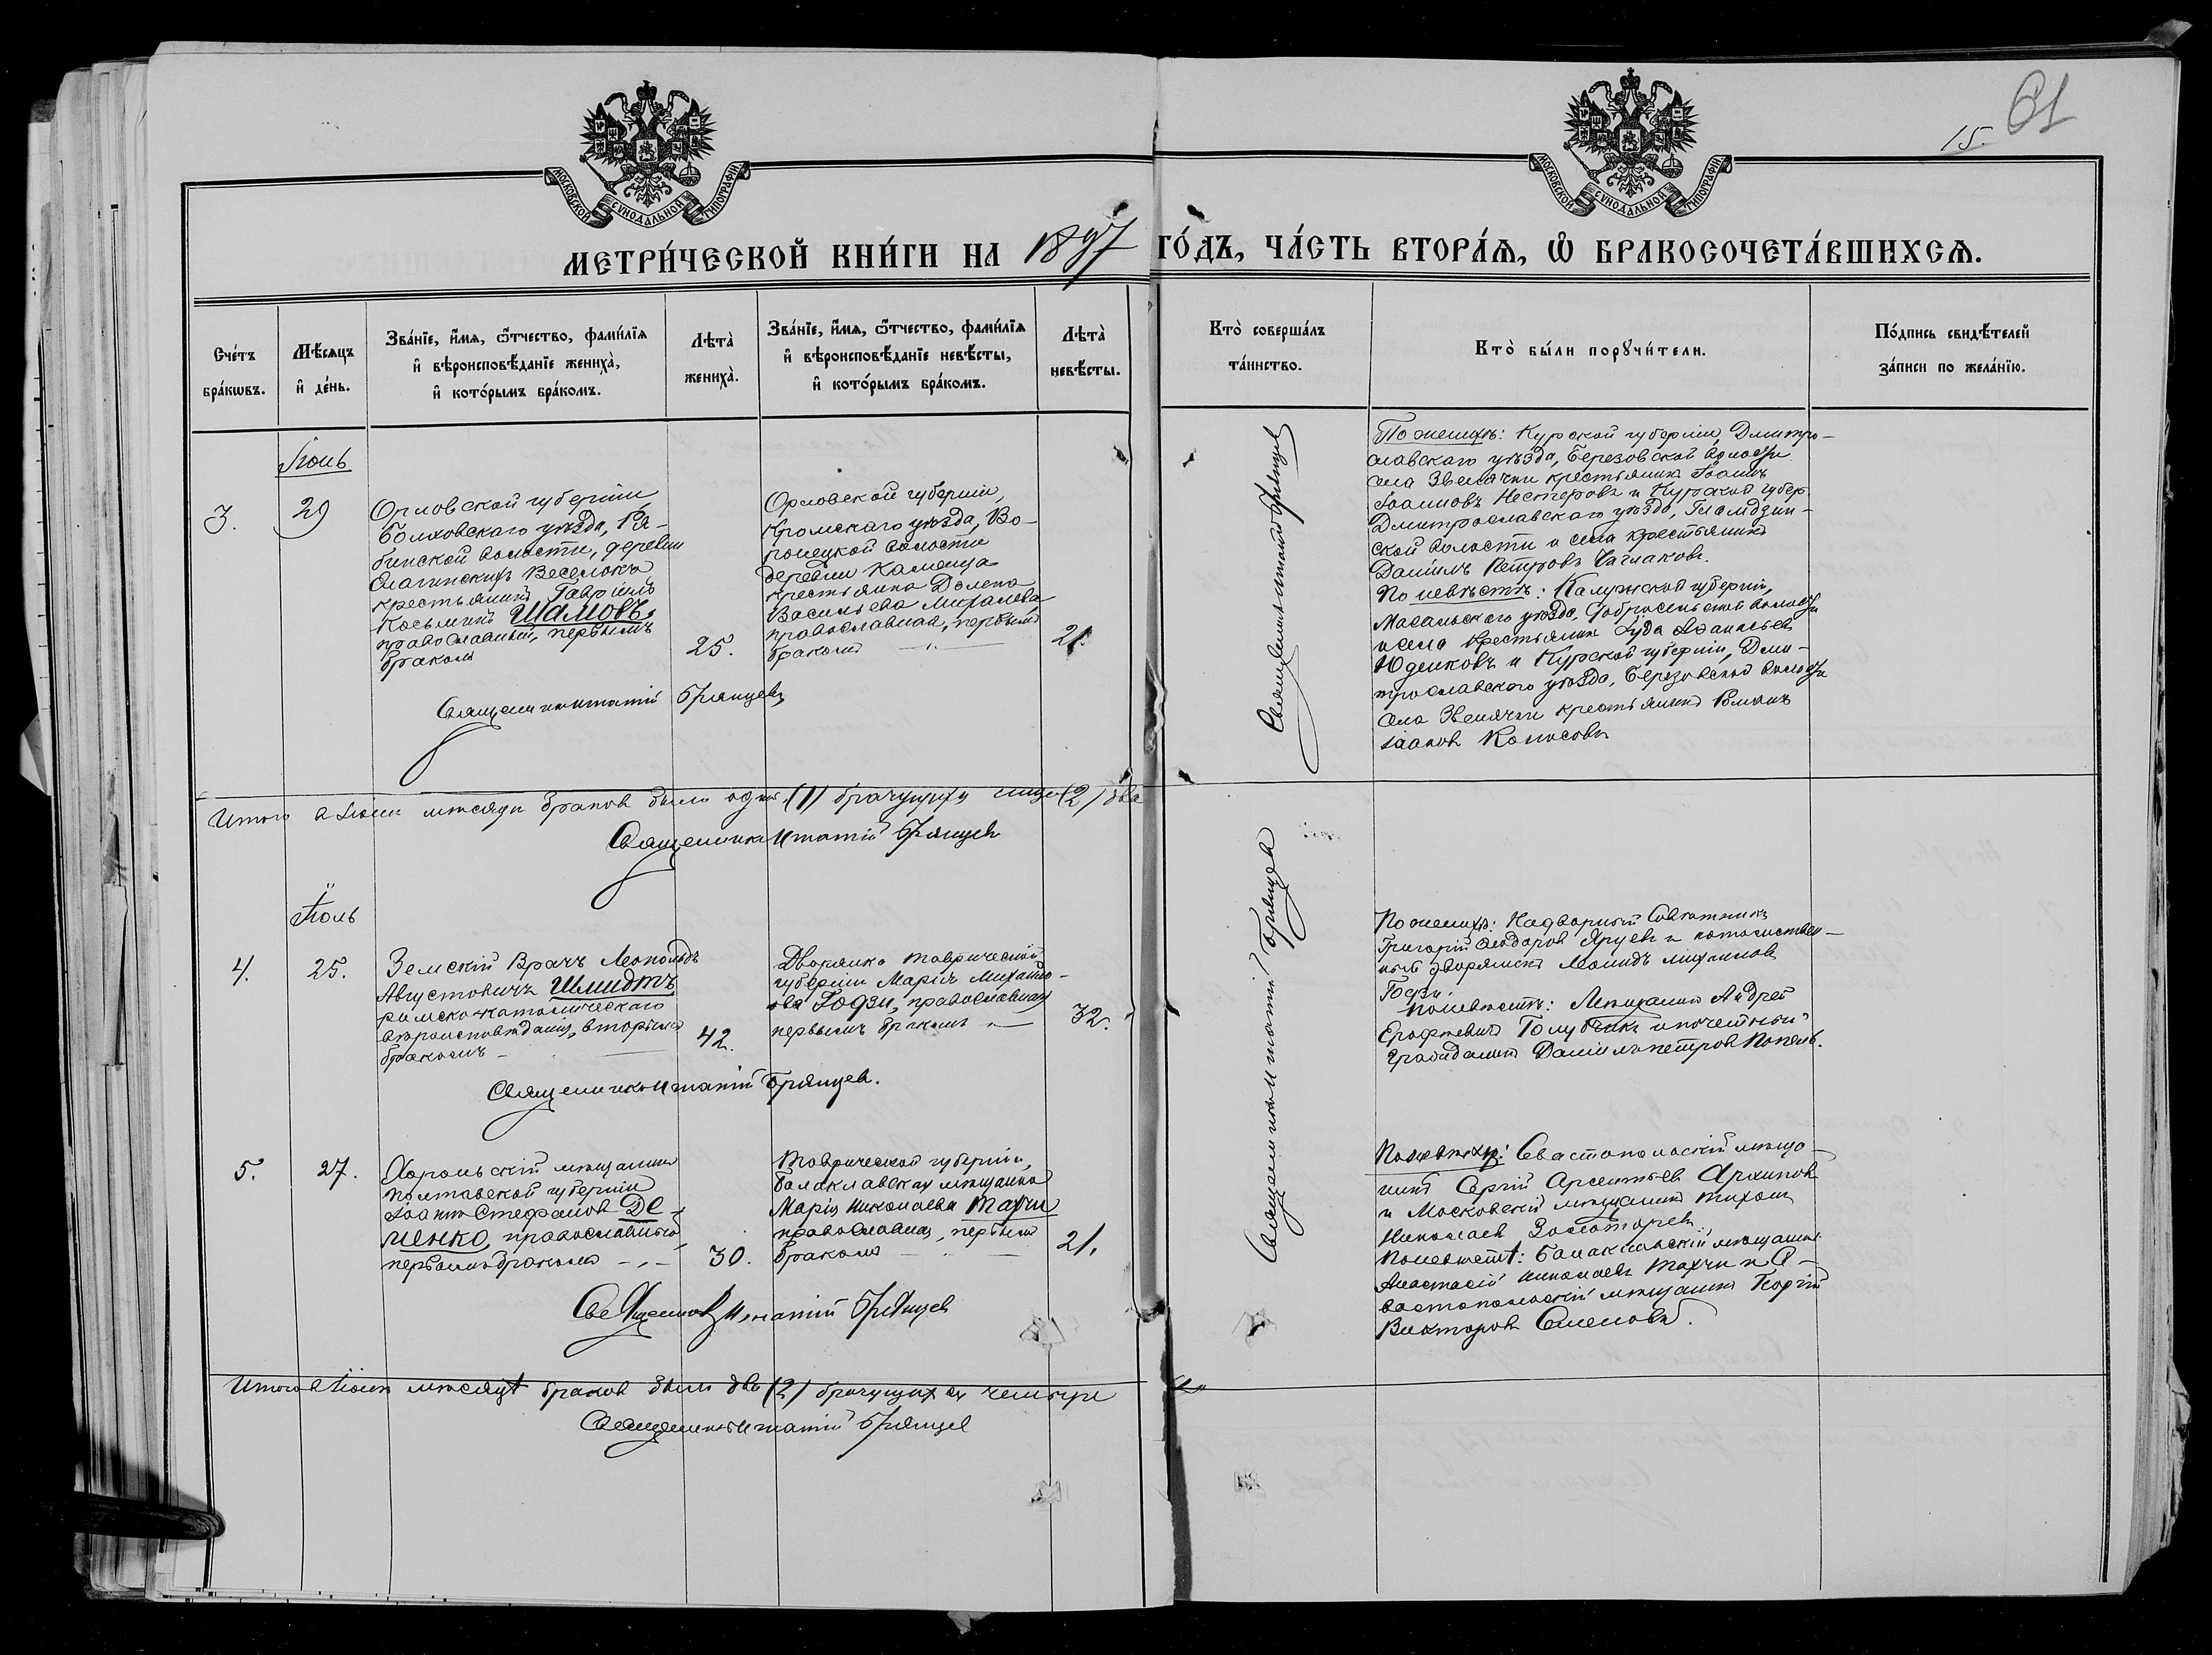 61
15.
МОСКОВСКОЙ СѴНОДАЛЬНОЙ ТИПОГРАФІИ
МОСКОВСКОЙ СѴНОДАЛЬНОЙ ТИПОГРАФІИ
МЕТРИ́ЧЕСКОЙ КНИ́ГИ НА 1897 ГО́ДЪ, ЧА́СТЬ ВТОРА́Ѧ, Ѽ БРАКОСОЧЕТА́ВШИХСѦ.
Сче́тъ
бра́кѡвъ.
Мѣ́сяцъ
и҆ де́нь.
Зва́нїе, и҆́мѧ, ѻ҆́тчество, фами́лїѧ
и҆ вѣроисповѣ́данїе женихà,
и҆ кото́рымъ бра́комъ.
Лѣтà
женихà.
Зва́нїе, и҆́мѧ, ѻ҆́тчество, фами́лїѧ
и҆ вѣроисповѣ́данїе невѣ́сты,
и҆ кото́рымъ бра́комъ.
Лѣтà
невѣ́сты.
Кто̀ соверша́лъ
та́инство.
Кто̀ бы́ли порꙋчи́тели.
По́дпись свидѣ́телей
за́писи по жела́нїю.
Іюнь
3.
29
Орловской губерніи,
Болховскаго уѣзда, Ря-
бинской волости, деревни
Веселокъ
крестьянинъ Гавріилъ
Косьминъ Шамовъ,
православный, первымъ
бракомъ
25.
Орловской губерніи,
Кромскаго уѣзда, Во-
ронецкой волости
деревни Каменца
крестьянка
Васильева Михалева
православная, первымъ
бракомъ
21.
Священникъ Игнатій Брянцевъ
Священникъ Игнатій Брянцевъ
По женихѣ: Курской губерніи, Дмитро-
славскаго уѣзда, Березовской волости
села Звенячки крестьянинъ Іоаннъ
Іоанновъ Нестеровъ и Курской губер.
Дмитрославскаго уѣзда,
ской волости и села крестьянинъ
Даніилъ Петровъ
По невѣстѣ: Калужской губерніи,
Масальскаго уѣзда, волости
и села крестьянинъ
Юденковъ и Курской губерніи, Дми-
трославскаго уѣзда, Березовской волости
села Звенячки крестьянинъ Романъ
Іаковъ Колосовъ
Итого въ Іюнѣ мѣсяцѣ браковъ было одинъ (1) брачущихся лицъ (2) два
Священникъ Игнатій Брянцевъ
Іюль
4.
25.
Земскій Врачъ Леопольдъ
Августовичъ Шмидтъ
римско-католическаго
вѣроисповѣданія, вторымъ
бракомъ
42.
Дворянка Таврической
губерніи Марія Михайло-
ва Гофзи, православная
первымъ бракомъ
32.
Священникъ Игнатій Брянцевъ.
Священникъ Игнатій Брянцевъ
По женихѣ: Надворный Совѣтникъ
Григорій Ѳеодоровъ и потомствен-
ный дворянинъ Леонидъ Михаиловъ
Гофзи
По невѣстѣ: Андрей
Ерофѣевичъ Голубчикъ и почетный
гражданинъ Даніилъ Петровъ Поповъ.
5.
27.
Хорольскій мѣщанинъ
Полтавской губерніи
Іоаннъ Стефановъ Де-
менко, православный,
первымъ бракомъ
30.
Таврической губерніи,
Балаклавская мѣщанка
Марія Николаева Тахчи
православная, первымъ
бракомъ
21.
Священникъ Игнатій Брянцевъ
По женихѣ: Севастопольскій мѣща-
нинъ Сергій Арсентьевъ Архиповъ
и Московскій мѣщанинъ Тихонъ
Николаевъ Золоторевъ
По невѣстѣ: Балаклавскій мѣщанинъ
Анастасій Николаевъ Тахчи и Се-
вастопольскій мѣщанинъ Георгій
Викторовъ Семеновъ.
Итого въ Іюлѣ мѣсяцѣ браковъ было два (2) брачущихся четыре
Священникъ Игнатій Брянцевъ